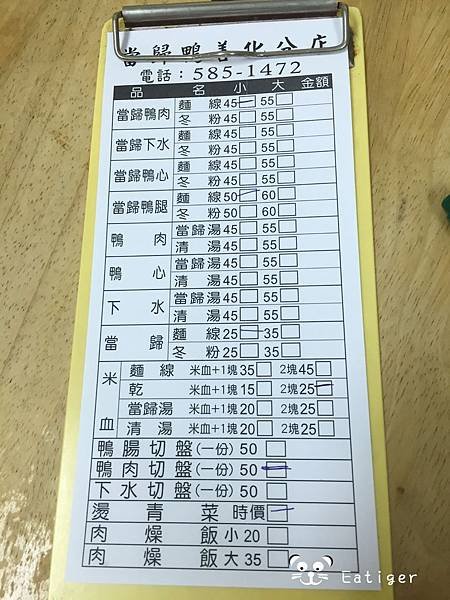 當歸鴨善化分店
電話：585-1472
品 名 小 大 金額
當歸鴨肉 麵 線 45 55
冬 粉 45 55
當歸下水 麵 線 45 55
冬 粉 45 55
當歸鴨心 麵 線 45 55
冬 粉 45 55
當歸鴨腿 麵 線 50 60
冬 粉 50 60
鴨 肉 當歸湯 45 55
清 湯 45 55
鴨 心 當歸湯 45 55
清 湯 45 55
下 水 當歸湯 45 55
清 湯 45 55
當 歸 麵 線 25 35
冬 粉 25 35
米血 麵 線 米血+1塊 35 2塊 45
乾 米血+1塊 15 2塊 25
當歸湯 米血+1塊 20 2塊 25
清 湯 米血+1塊 20 2塊 25
鴨腸切盤(一份) 50
鴨肉切盤(一份) 50
下水切盤(一份) 50
燙 青 菜 時價
肉 燥 飯 小 20
肉 燥 飯 大 35
Eatiger